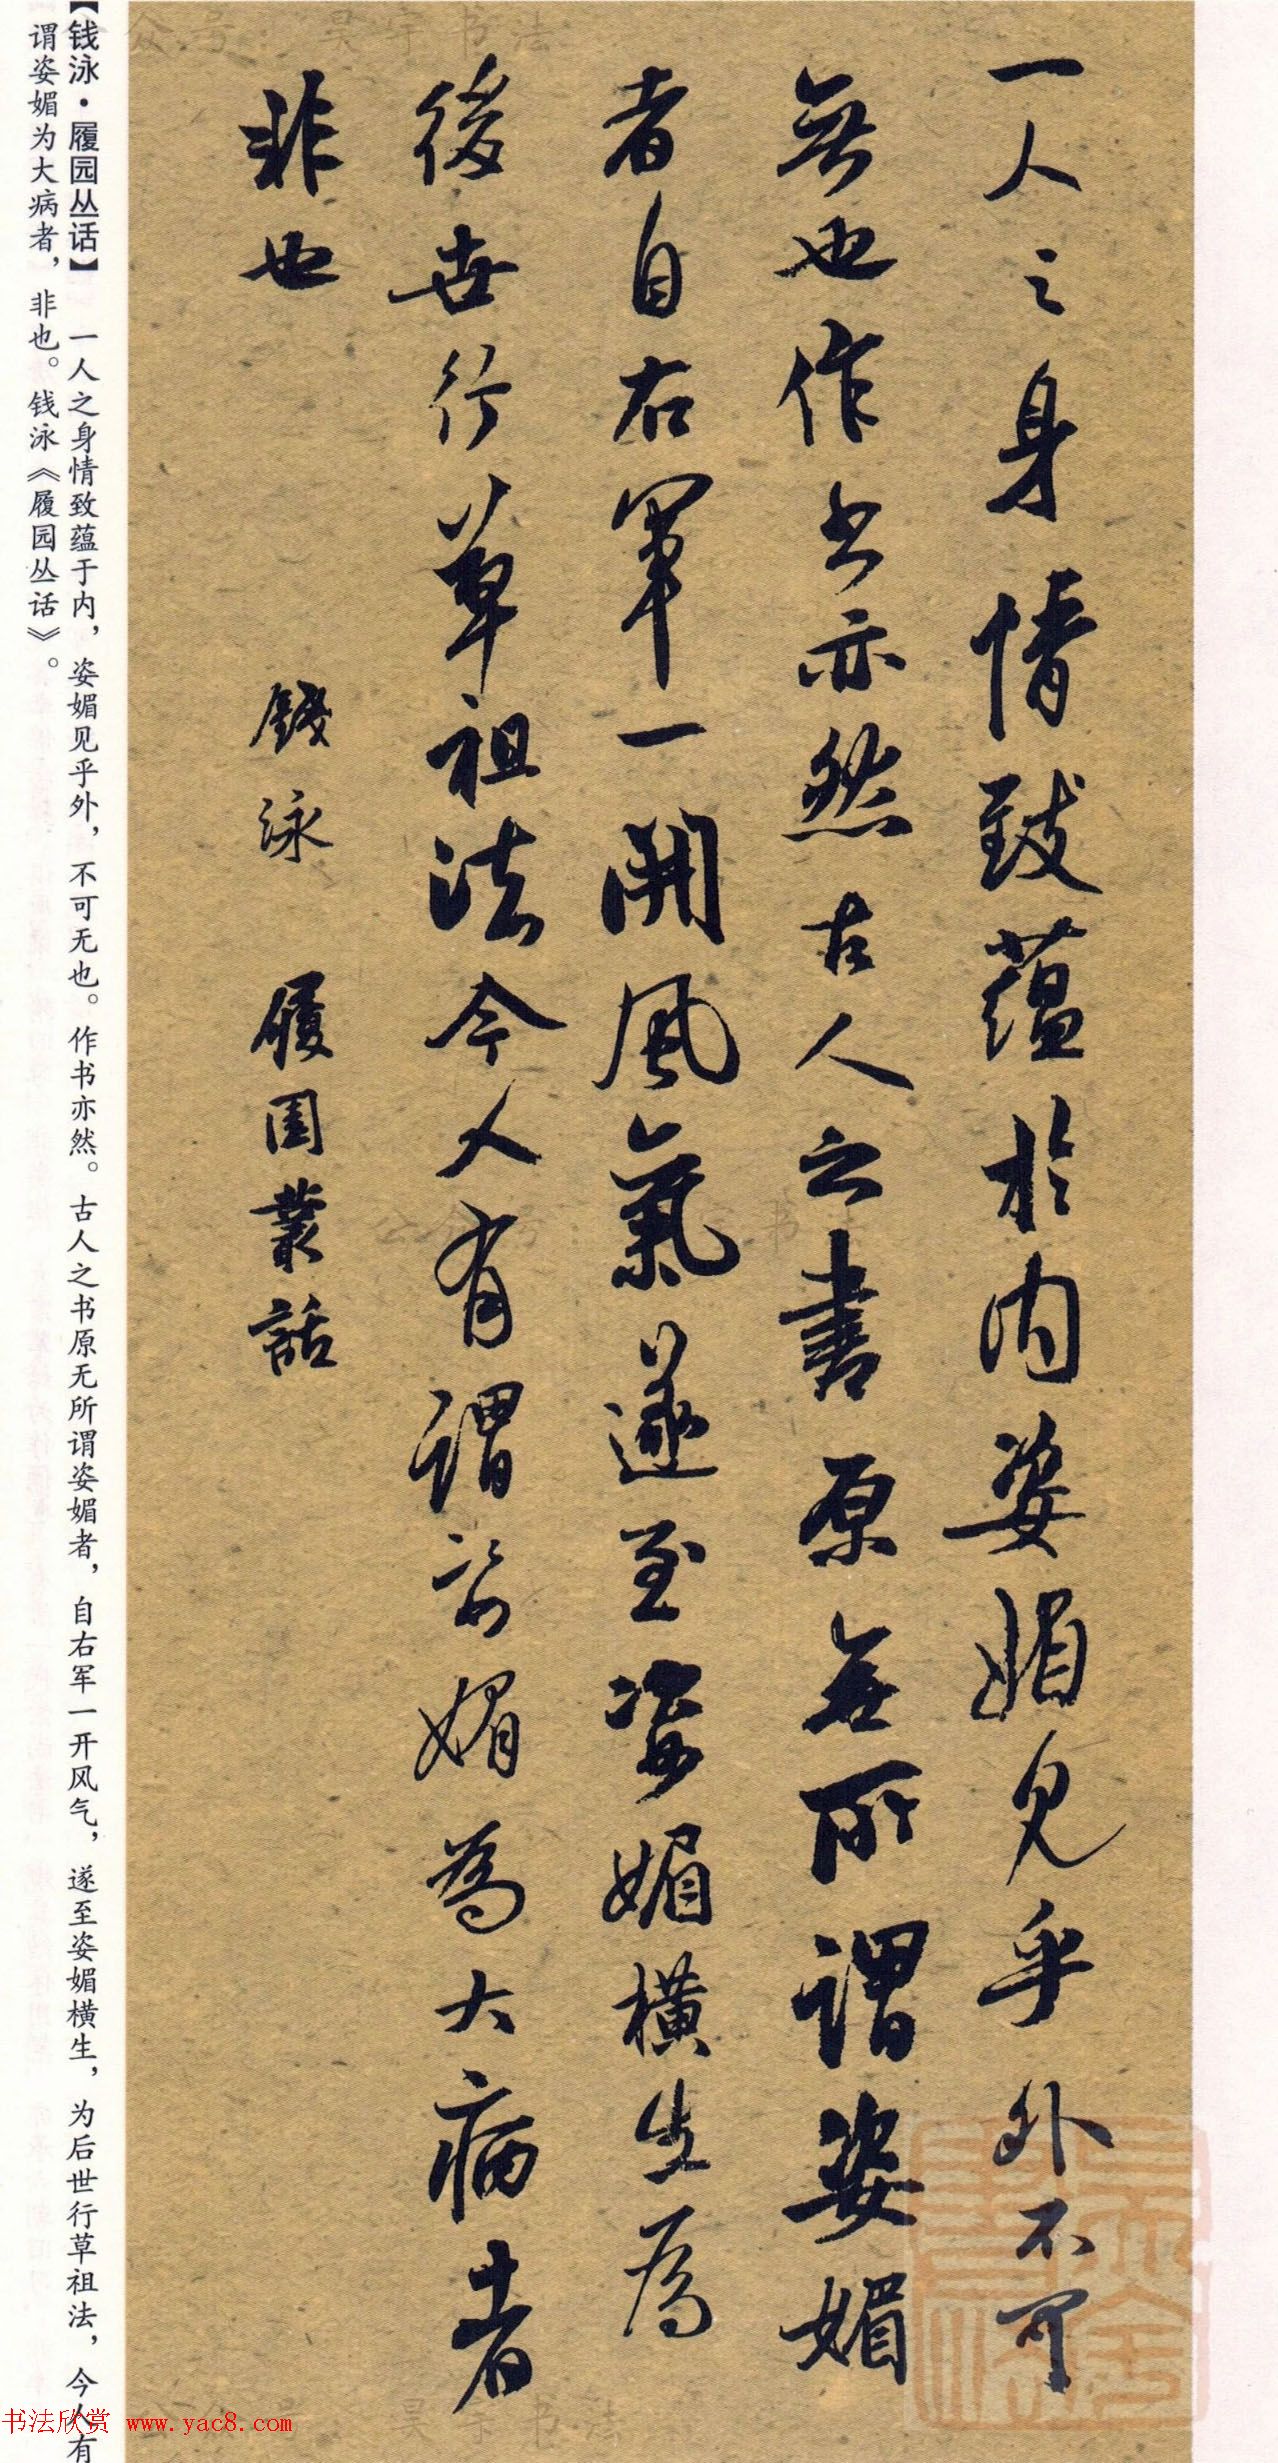 一人之身情致蘊於内姿媚見乎外不可
無也作书亦然古人之書原無所謂姿媚
者自右軍一開風氣遂至姿媚橫生為
後世行草祖法今人有謂姿媚為大病者
非也
錢泳 履園叢話
【钱泳·履园丛话】 一人之身情致蕴于内，姿媚见乎外，不可无也。作书亦然。古人之书原无所谓姿媚者，自右军一开风气，遂至姿媚横生，为后世行草祖法，今人有
谓姿媚为大病者，非也。钱泳《履园丛话》。
书法欣赏 www.yac8.com
公众号：昊宇书法